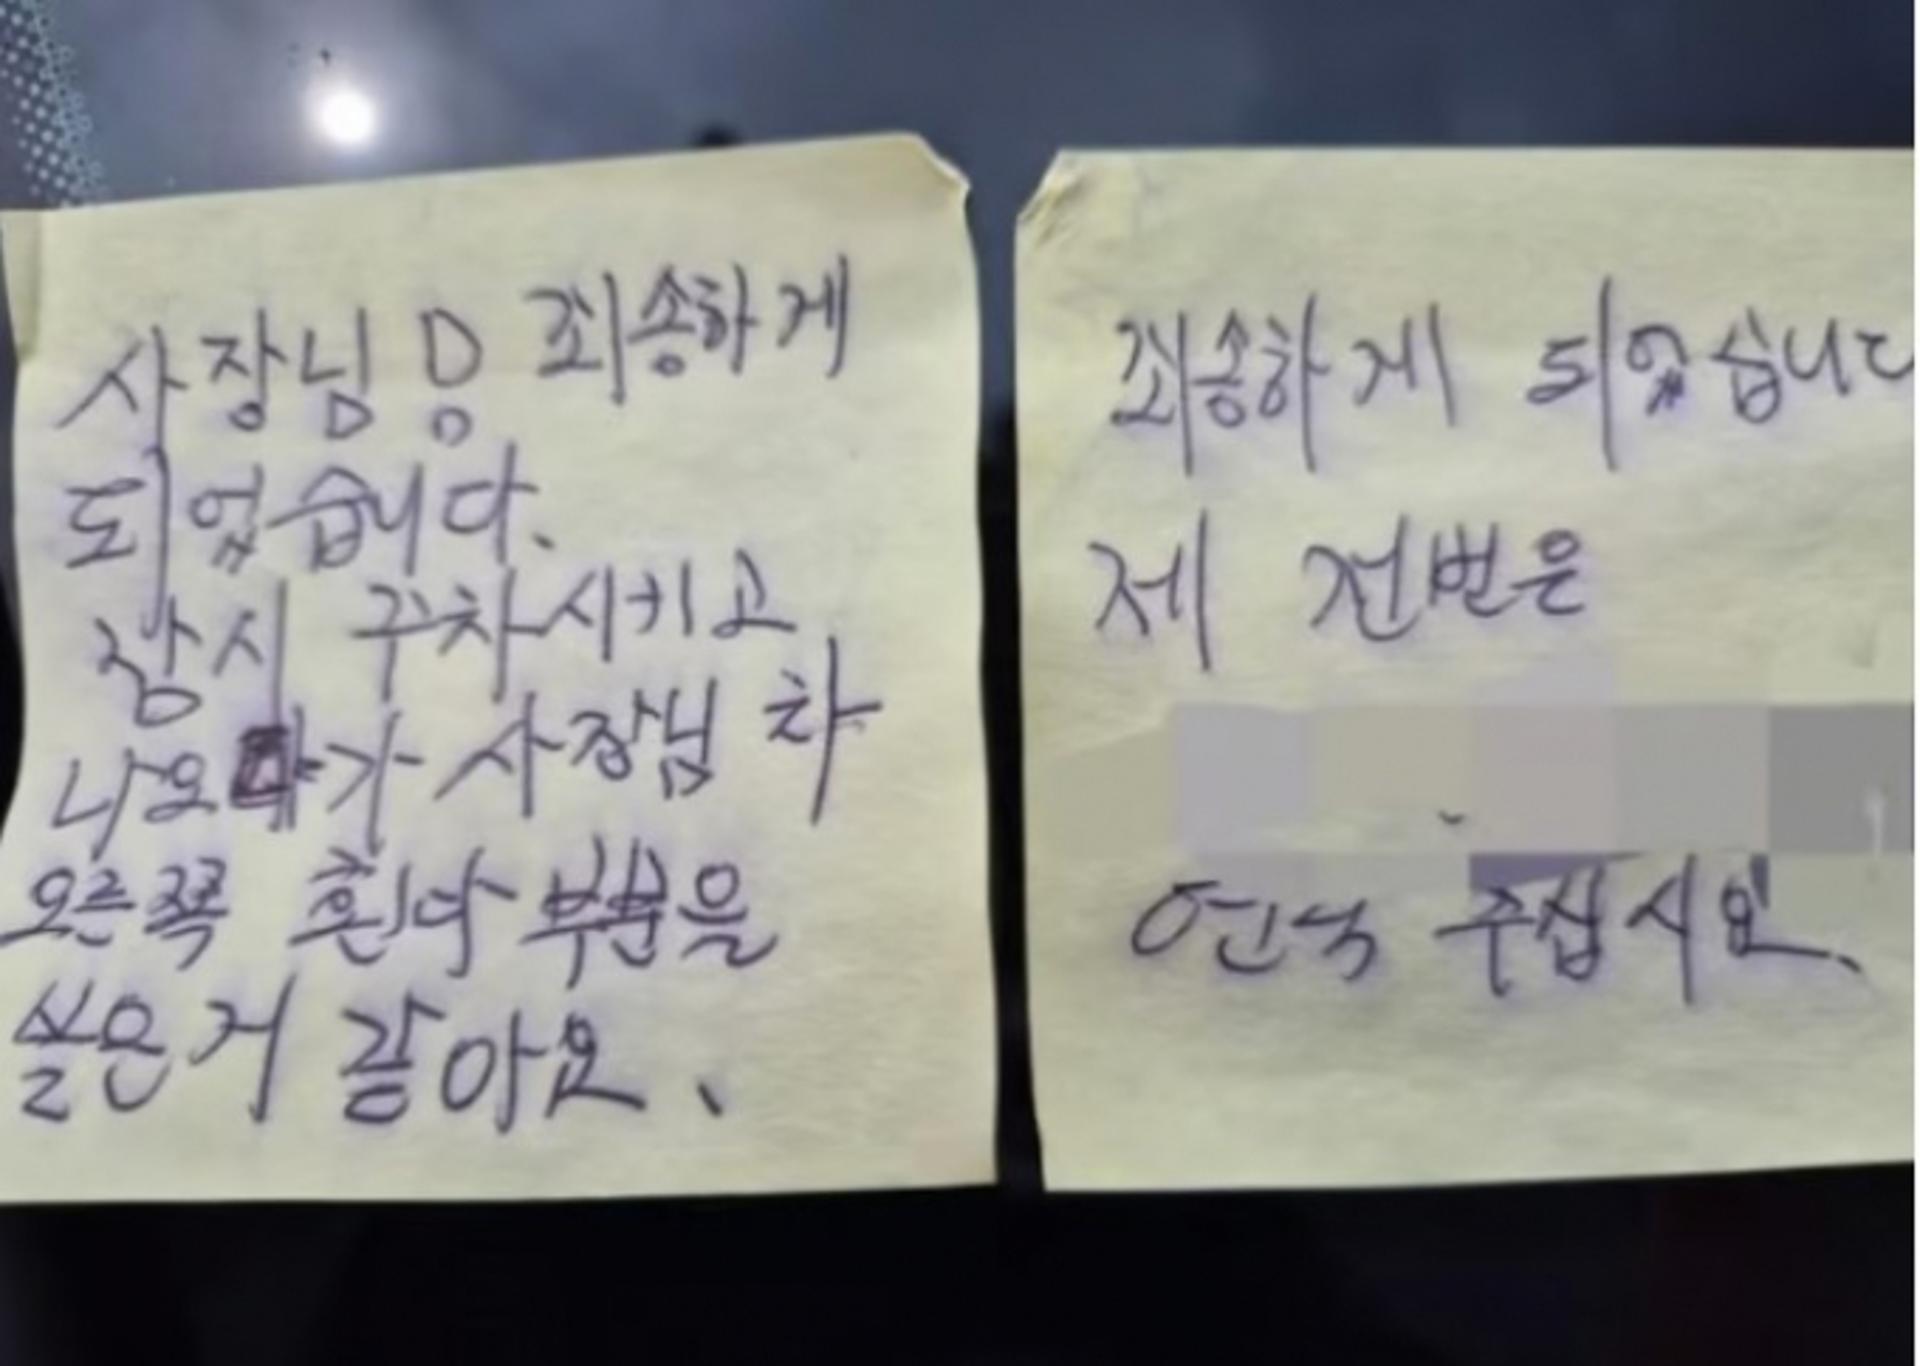 사장님 죄송하게
되었습니다.
잠시 주차시키고
나오다가 사장님 차
오른쪽 흰다 부분을
실은거 같아요.
죄송하게 되었습니다
제 전번은
연락 주십시요.